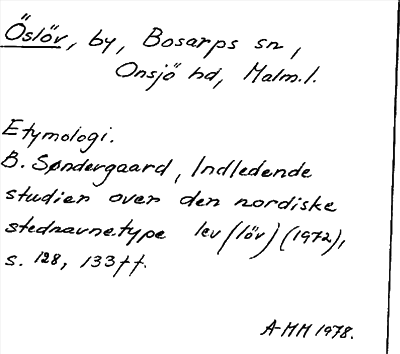 Öslöv, by, Bosarps sn,
Onsjö hd, Malm.l.
Etymologi.
B. Søndergaard, Indledende
studier over den nordiske
stednavnetype lev (löv) (1972),
s. 128, 133ff.
A-MM 1978.